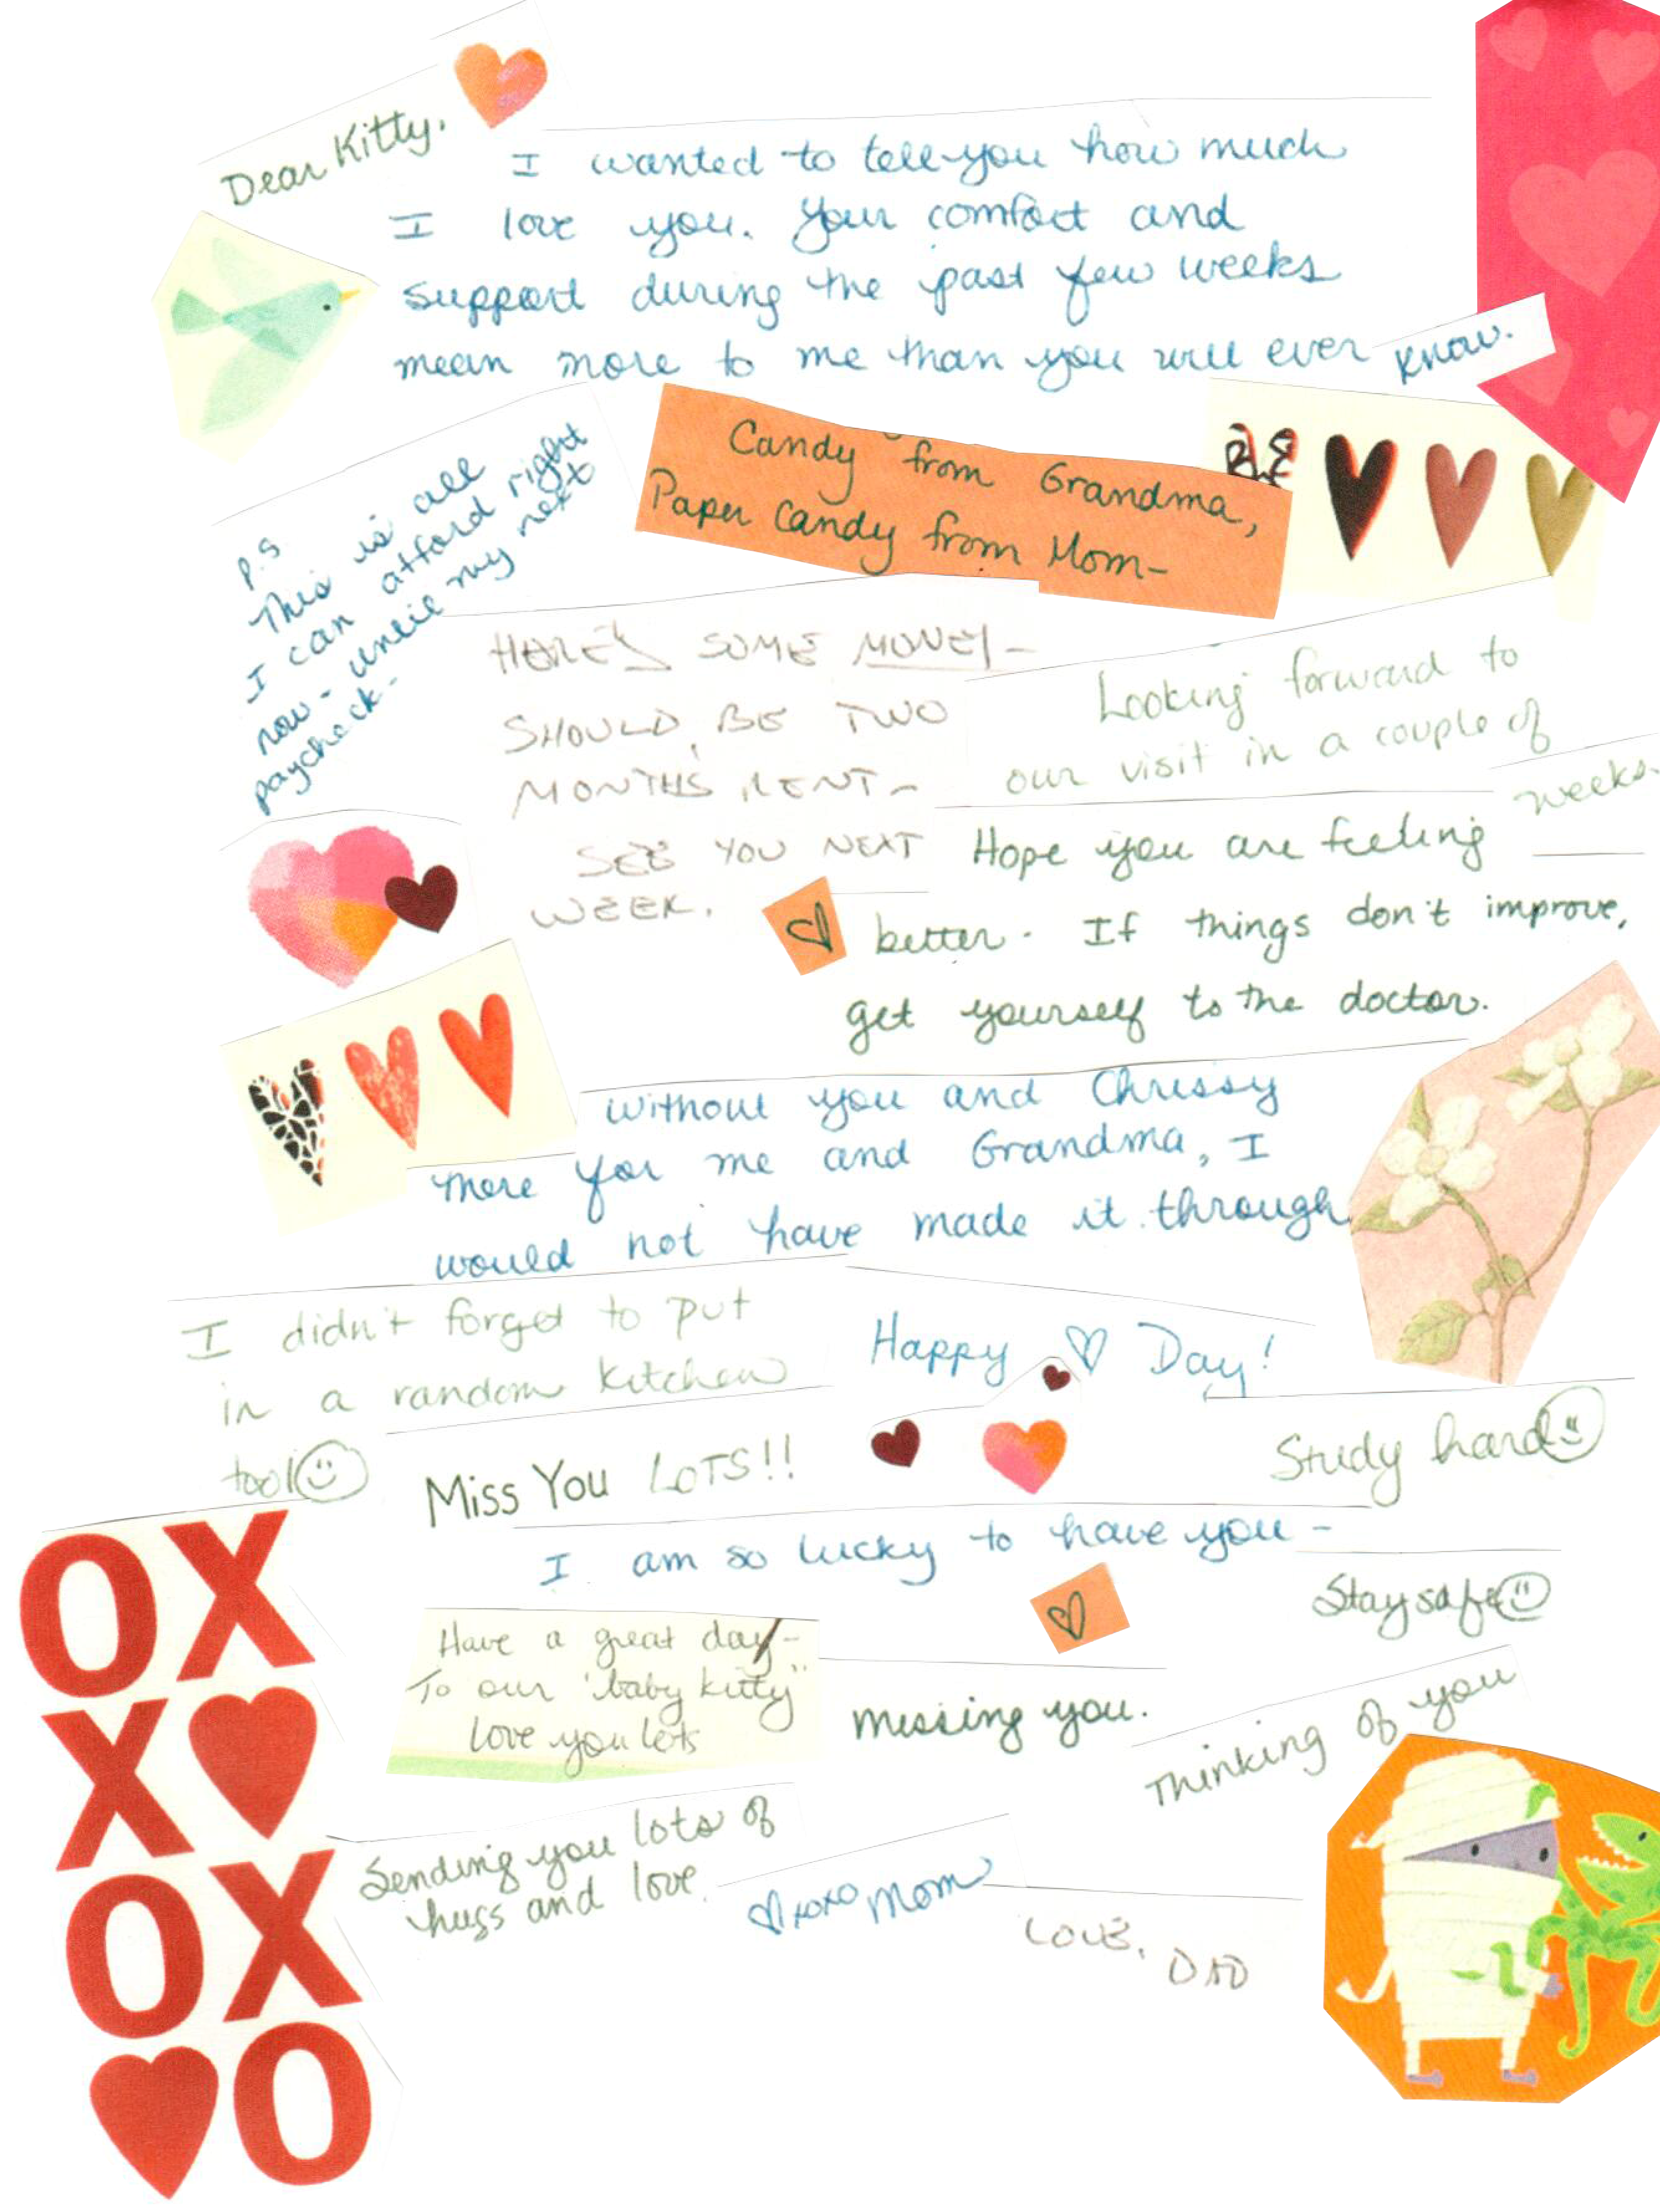 Dear Kitty,
I wanted to tell you how much
I love you. Your comfort and
support during the past few weeks
mean more to me than you will ever know.
Candy from Grandma,
Paper Candy from Mom-
P.S
This is all
I can afford right
now - until my next
paycheck-
HERE'S SOME MONEY-
SHOULD BE TWO
MONTHS RENT-
SEE YOU NEXT
WEEK.
Looking forward to
our visit in a couple of
weeks.
Hope you are feeling
better. If things don't improve,
get yourself to the doctor.
Without you and Chrissy
there for me and Grandma, I
would not have made it through
I didn't forget to put
in a random kitchen
tool
Happy ♡ Day!
Miss You LOTS!!
Study hard
I am so lucky to have you -
Stay safe
Have a great day-
To our "baby kitty"
love you lots
missing you.
Thinking of you
Sending you lots of
hugs and love.
♡xoxo Mom
LOVE, DAD
OX
X
OX
O